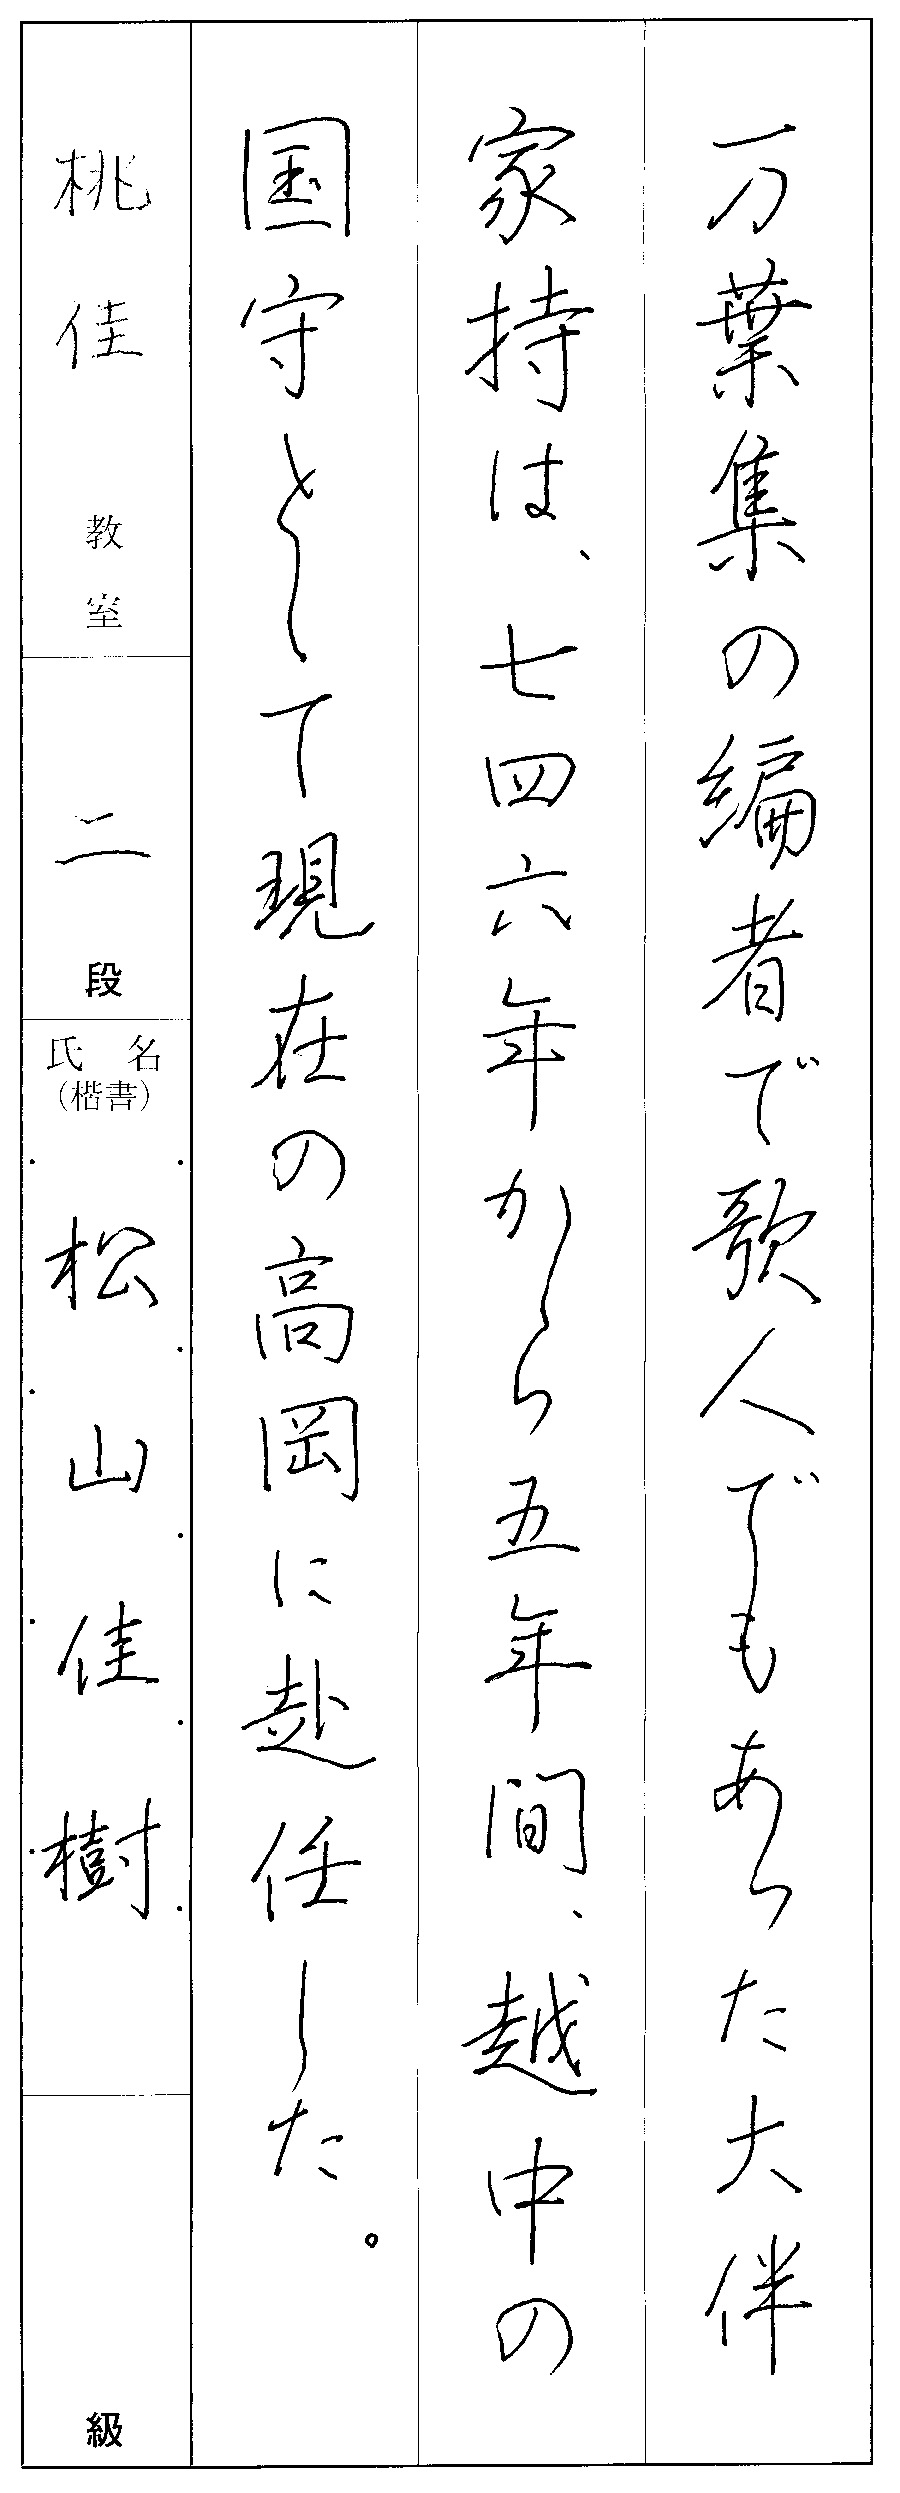 万葉集の編者で歌人でもあった大伴
家持は、七四六年から五年間、越中の
国守として現在の高岡に赴任した。
桃佳教室
二段
氏名
（楷書）
松山佳樹
級